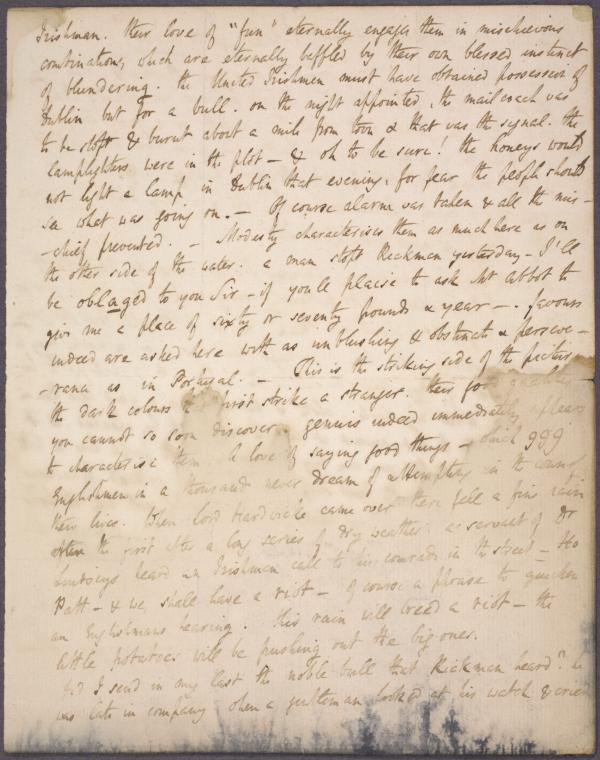 Irishman. their love of "fun" eternally engages them in mischievous
combinations, which are eternally baffled by their own blessed instinct
of blundering. the United Irishmen must have obtained possession of
Dublin but for a bull. on the night appointed, the mail coach was
to be stopt & burnt about a mile from town & that was the signal. the
lamplighters were in the plot – & oh to be sure! the honeys would
not light a lamp in Dublin that evening, for fear the people should
see what was going on. – Of course alarm was taken & all the mis-
-chief prevented. – Modesty characterises them as much here as on
the other side of the water. a man stopt Rickman yesterday – I'll
be oblaged to you Sir – if youll plaise to ask Mr Abbot to
give me a place of sixty or seventy pounds a year – . favours
indeed are asked here with as unblushing & obstinate a perseve-
-rance as in Portugal. – This is the striking side of the picture
the dark colours first strike a stranger. their good qualities
you cannot so soon discover. genius indeed immediately appears
to characterise them. A love of saying good things – which 999
Englishmen in a thousand never dream of attempting in the course of
their lives. When Lord Hardwicke came over there fell a fine rain
the first after a long series of dry weather. a servant of Dr
Lindsays heard an Irishman call to his comrade in the street – Ho
Patt – & we shall have a riot – of course a phrase to quicken
an Englishmans hearing. this rain will breed a riot – the
little potatoes will be pushing out the big ones.
Did I send in my last the noble bull that Rickman heard? he
was late in company when a gentleman looked at his watch & cried